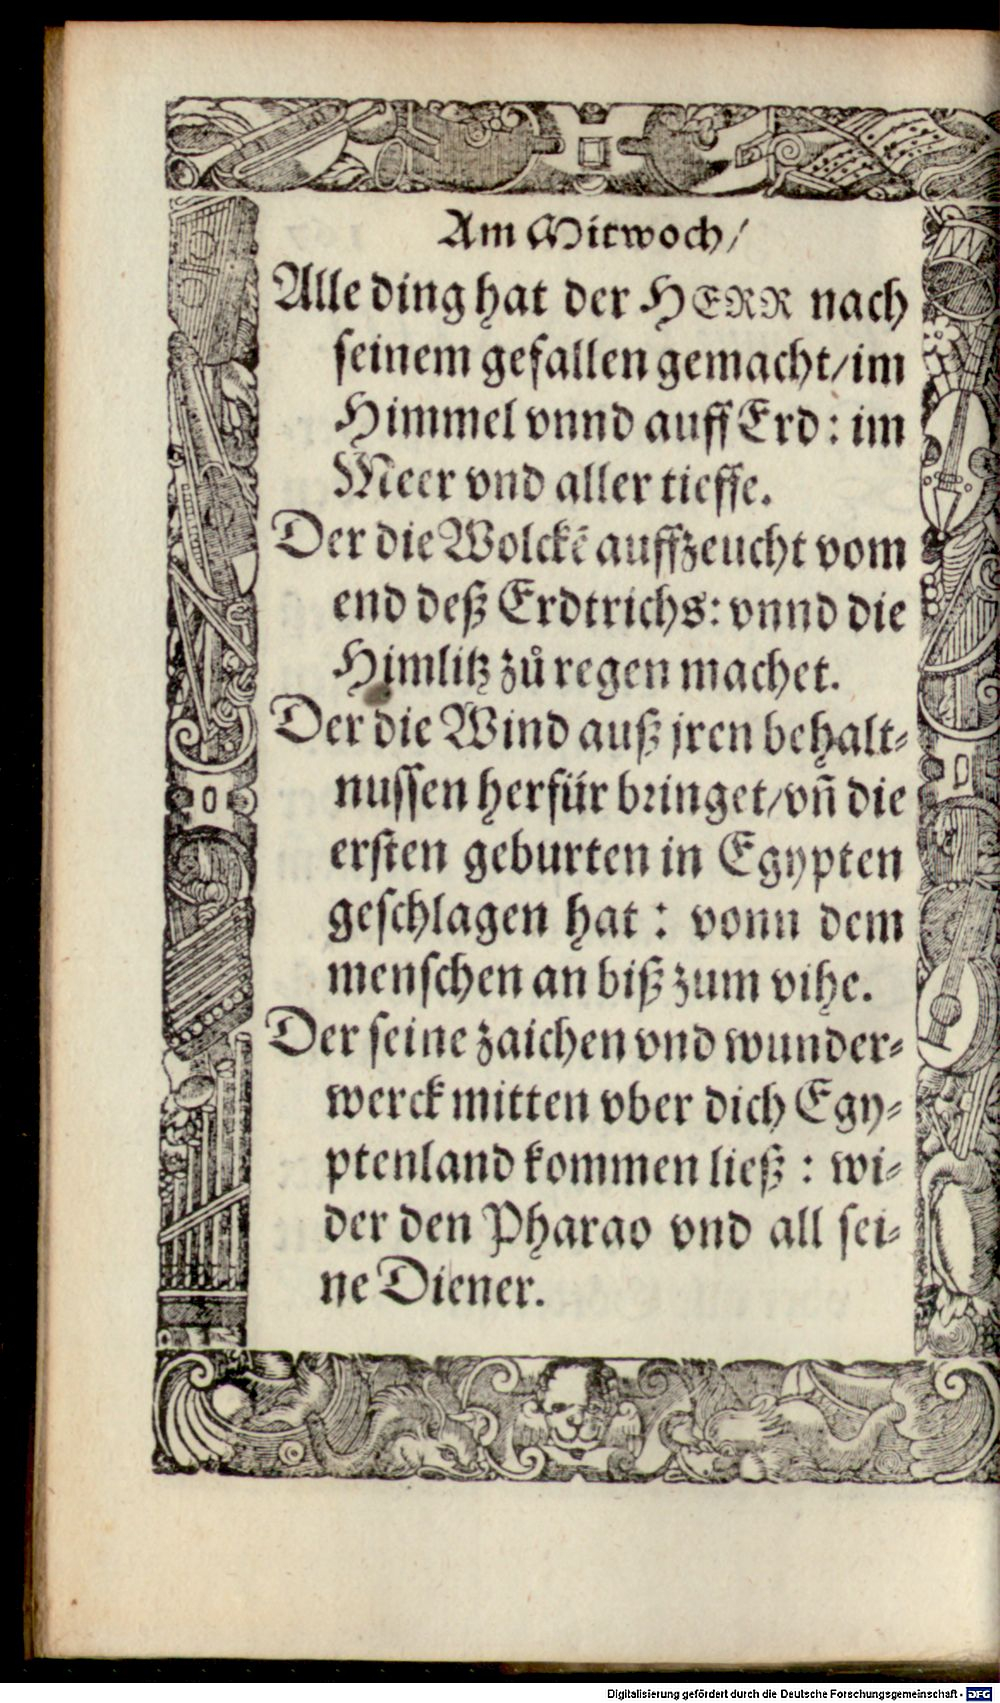 Am Mitwoch/
Alle ding hat der HERR nach
seinem gefallen gemacht/im
Himmel vnnd auff Erd: im
Meer vnd aller tieffe.
Der die Wolckē auffzeucht vom
end deß Erdtrichs: vnnd die
Himlitz zů regen machet.
Der die Wind auß jren behalt-
nussen herfür bringet/vñ die
ersten geburten in Egypten
geschlagen hat: vonn dem
menschen an biß zum vihe.
Der seine zaichen vnd wunder-
werck mitten vber dich Egy-
ptenland kommen ließ: wi-
der den Pharao vnd all sei-
ne Diener.
Digitalisierung gefördert durch die Deutsche Forschungsgemeinschaft - DFG